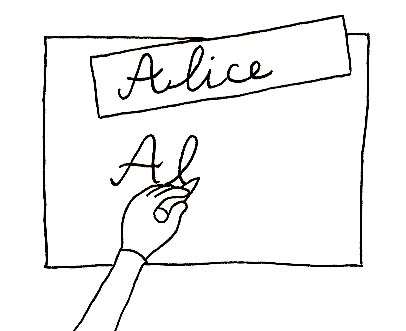 Alice
Al